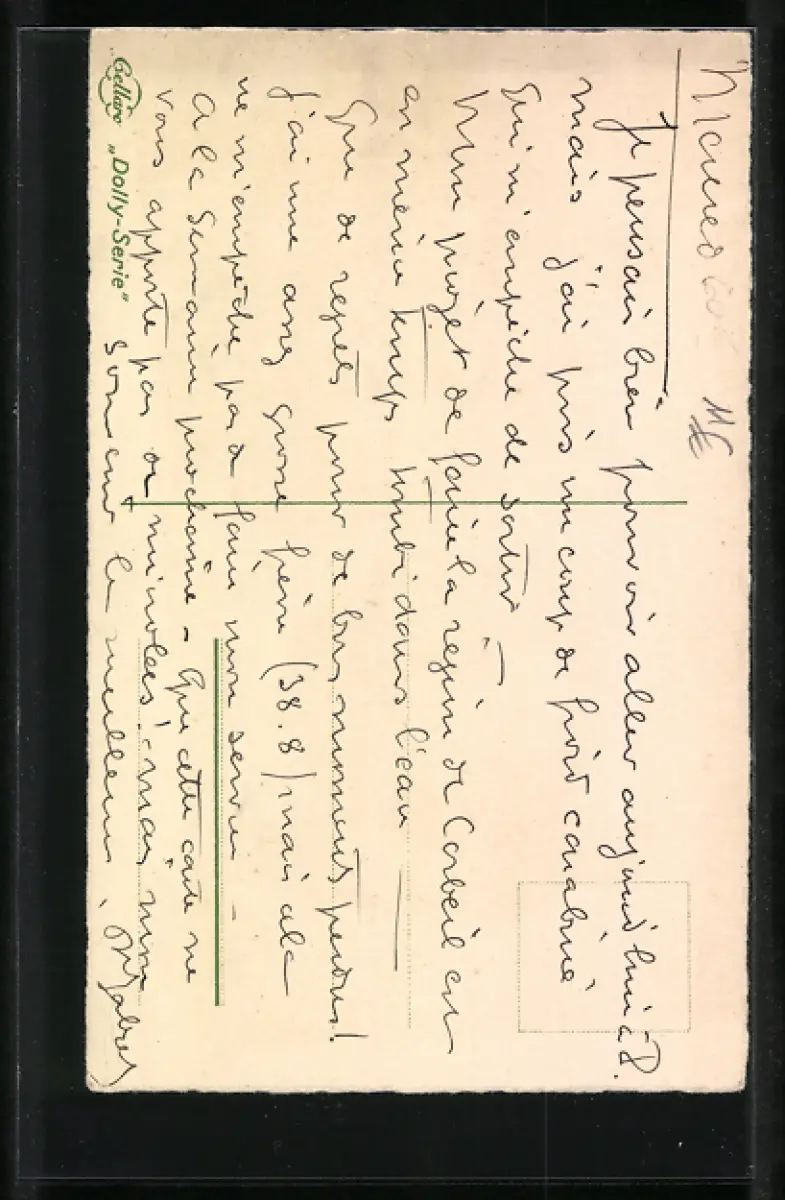 Mercredi
Je pensais bien pouvoir aller aujourd'hui à P.
mais j'ai pris un coup de froid carabiné
qui m'empêche de sortir —
Mon projet de faire la région de Corbeil en
en même temps tombe dans l'eau —
Que de regrets pour de bons moments perdus!
J'ai une assez grosse fièvre (38.8) mais cela
ne m'empêche pas de faire mon service —
A la semaine prochaine – Que cette carte ne
vous apporte pas de microbes! mais mon
souvenir le meilleur.
Cellaro "Dolly-Serie"